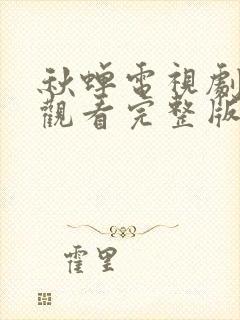 秋蟬電視劇
觀看完整版
霍里